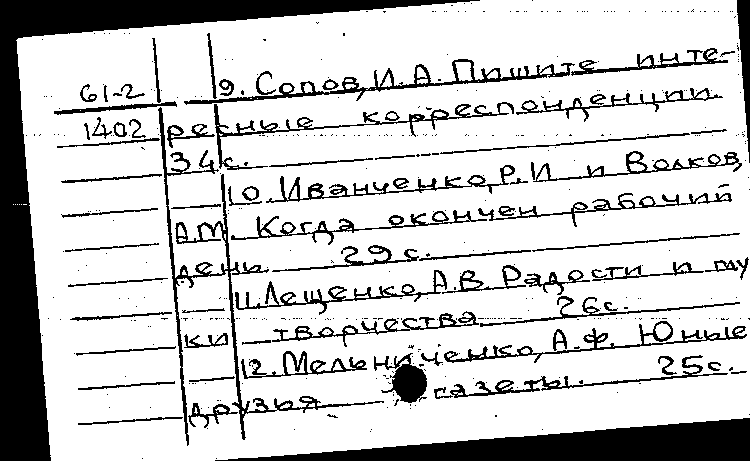 61-2 9. Сопов, И.А. Пишите инте-
1402 ресные корреспонденции.
34с.
10. Иванченко, Р.И и Волков,
А.М. Когда окончен рабочий
день. 29с.
11. Лещенко, А.В Радости и му
ки творчества. 26с.
12. Мельниченко, А.Ф. Юные
друзья газеты. 25с.